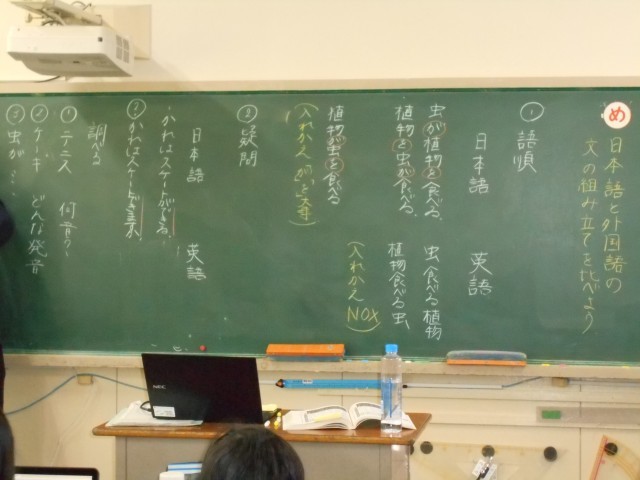 め
日本語と外国語の
文の組み立てを比べよう
① 語順
日本語
英語
虫が植物を食べる。
植物を虫が食べる。
虫 食べる 植物
植物 食べる 虫
(入れかえ NOX)
植物が虫を食べる
② 疑問
日本語
英語
かれはスケートが
かれはスケートが
調べる
① テニス 何音?
② ケーキ どんな発音
③ 虫が…
NEC